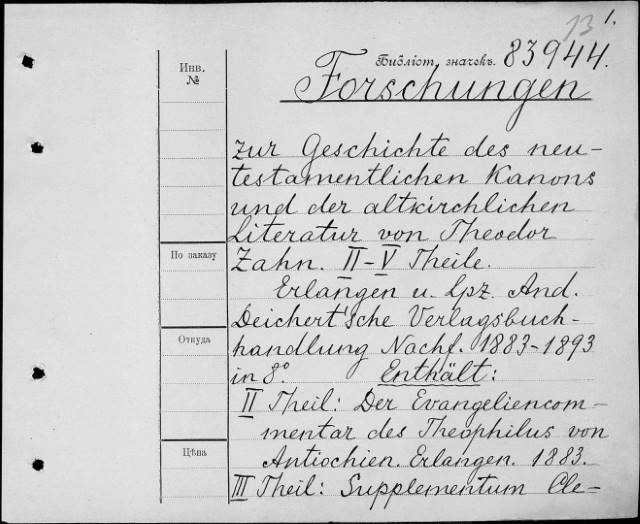 13 1.
Инв.
№
Библіот. значекъ. 83944.
Forschungen
zur Geschichte des neu-
testamentlichen Kanons
und der altkirchlichen
Literatur von Theodor
По заказу
Zahn. II-V Theile.
Erlangen u. Lpz. And.
Deichert'sche Verlagsbuch-
Откуда
handlung Nachf. 1883-1893
in 8º. Enthält:
II Theil: Der Evangeliencom-
mentar des Theophilus von
Цѣна
Antiochien. Erlangen. 1883.
III Theil: Supplementum Cle-